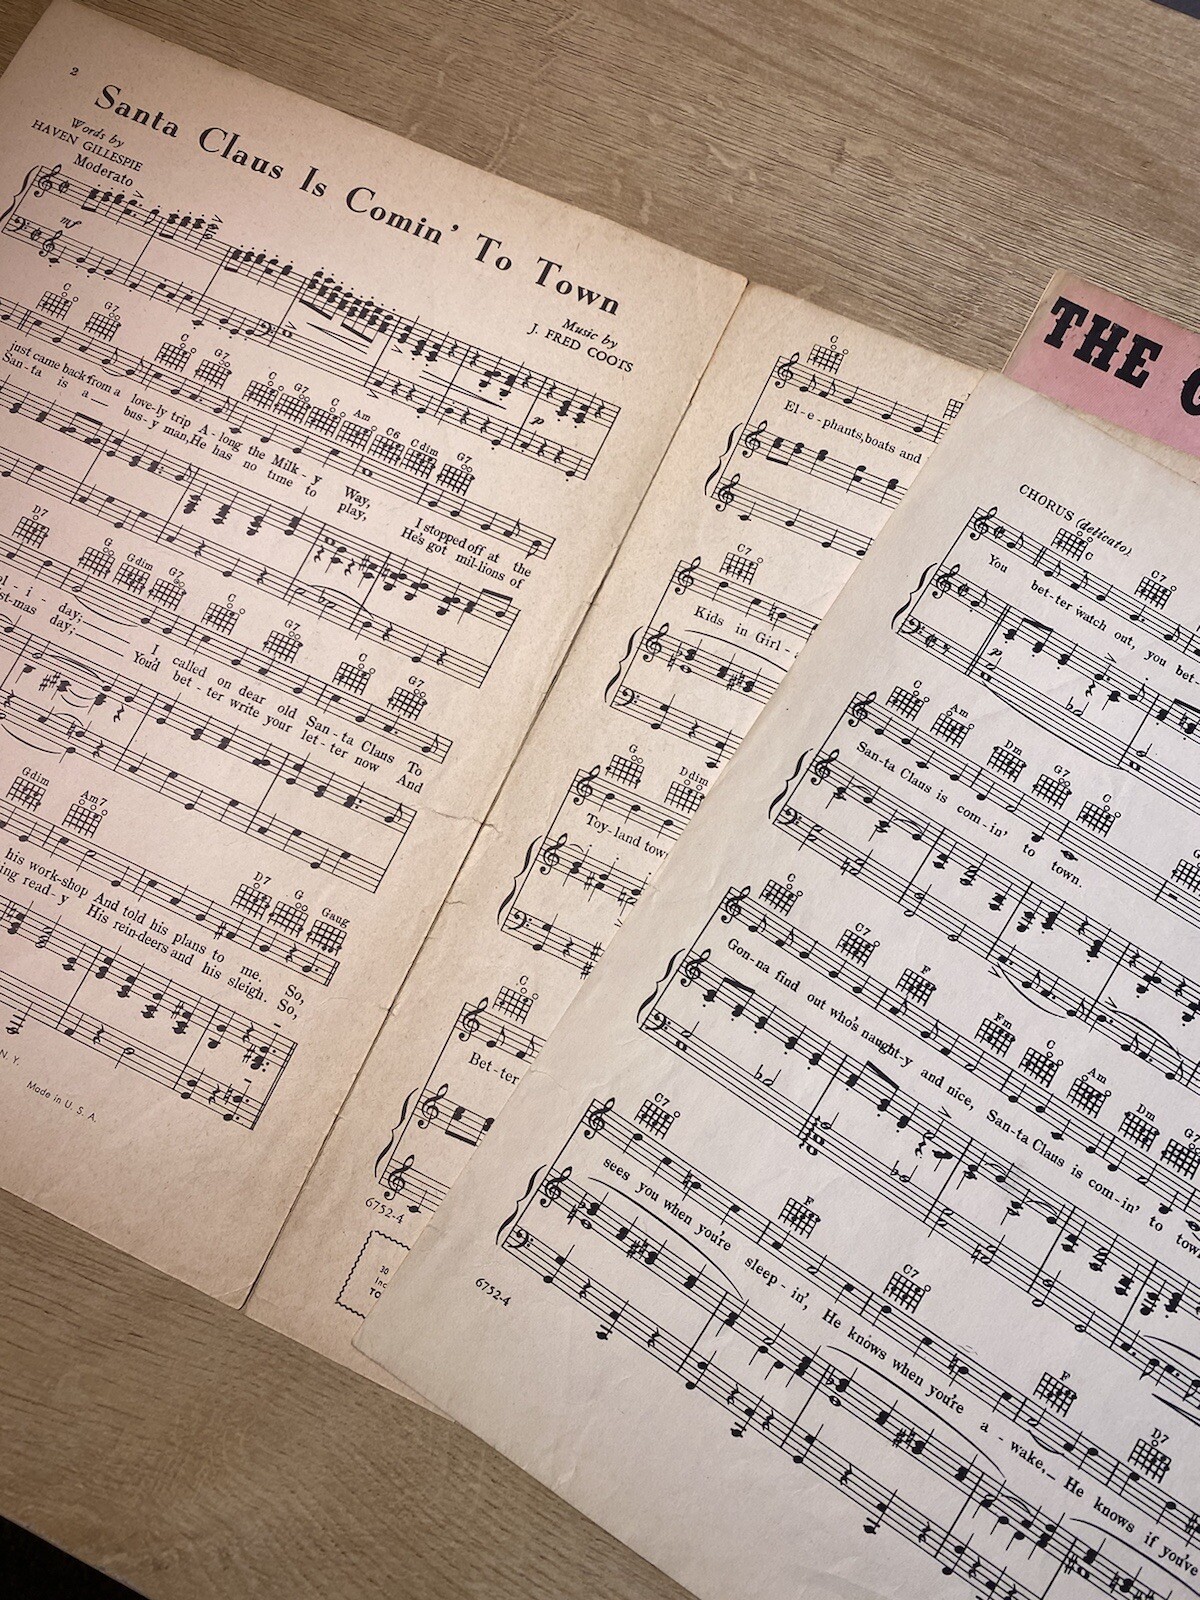 2
Santa Claus Is Comin' To Town
Words by
HAVEN GILLESPIE
Moderato
Music by
J. FRED COOTS
mf
p
C G7 C G7 C G7 C Am C6 Cdim G7
just came back from a love-ly trip A-long the Milk-y Way, I stopped off at the
San-ta is a bus-y man, He has no time to play, He's got mil-lions of
D7 G Gdim G7 C G7 C G7
i - day; I called on dear old San-ta Claus To
st-mas day; You'd bet-ter write your let-ter now And
Gdim Am7 D7 G Gaug
his work-shop And told his plans to me. So,
ing read-y His rein-deers and his sleigh. So,
N. Y.
Made in U. S. A.
C
El-e-phants, boats and
C7
Kids in Girl-
G Ddim
Toy-land tow
C
Bet-ter
6752-4
30
Inc
TO
THE
CHORUS (delicato)
C C7
You bet-ter watch out, you bet-
p
C Am Dm G7 C
San-ta Claus is com-in' to town.
C C7 F Fm C Am Dm G7
Gon-na find out who's naught-y and nice, San-ta Claus is com-in' to town
C7 F C7 F D7
sees you when you're sleep-in', He knows when you're a-wake, He knows if you've
6752-4